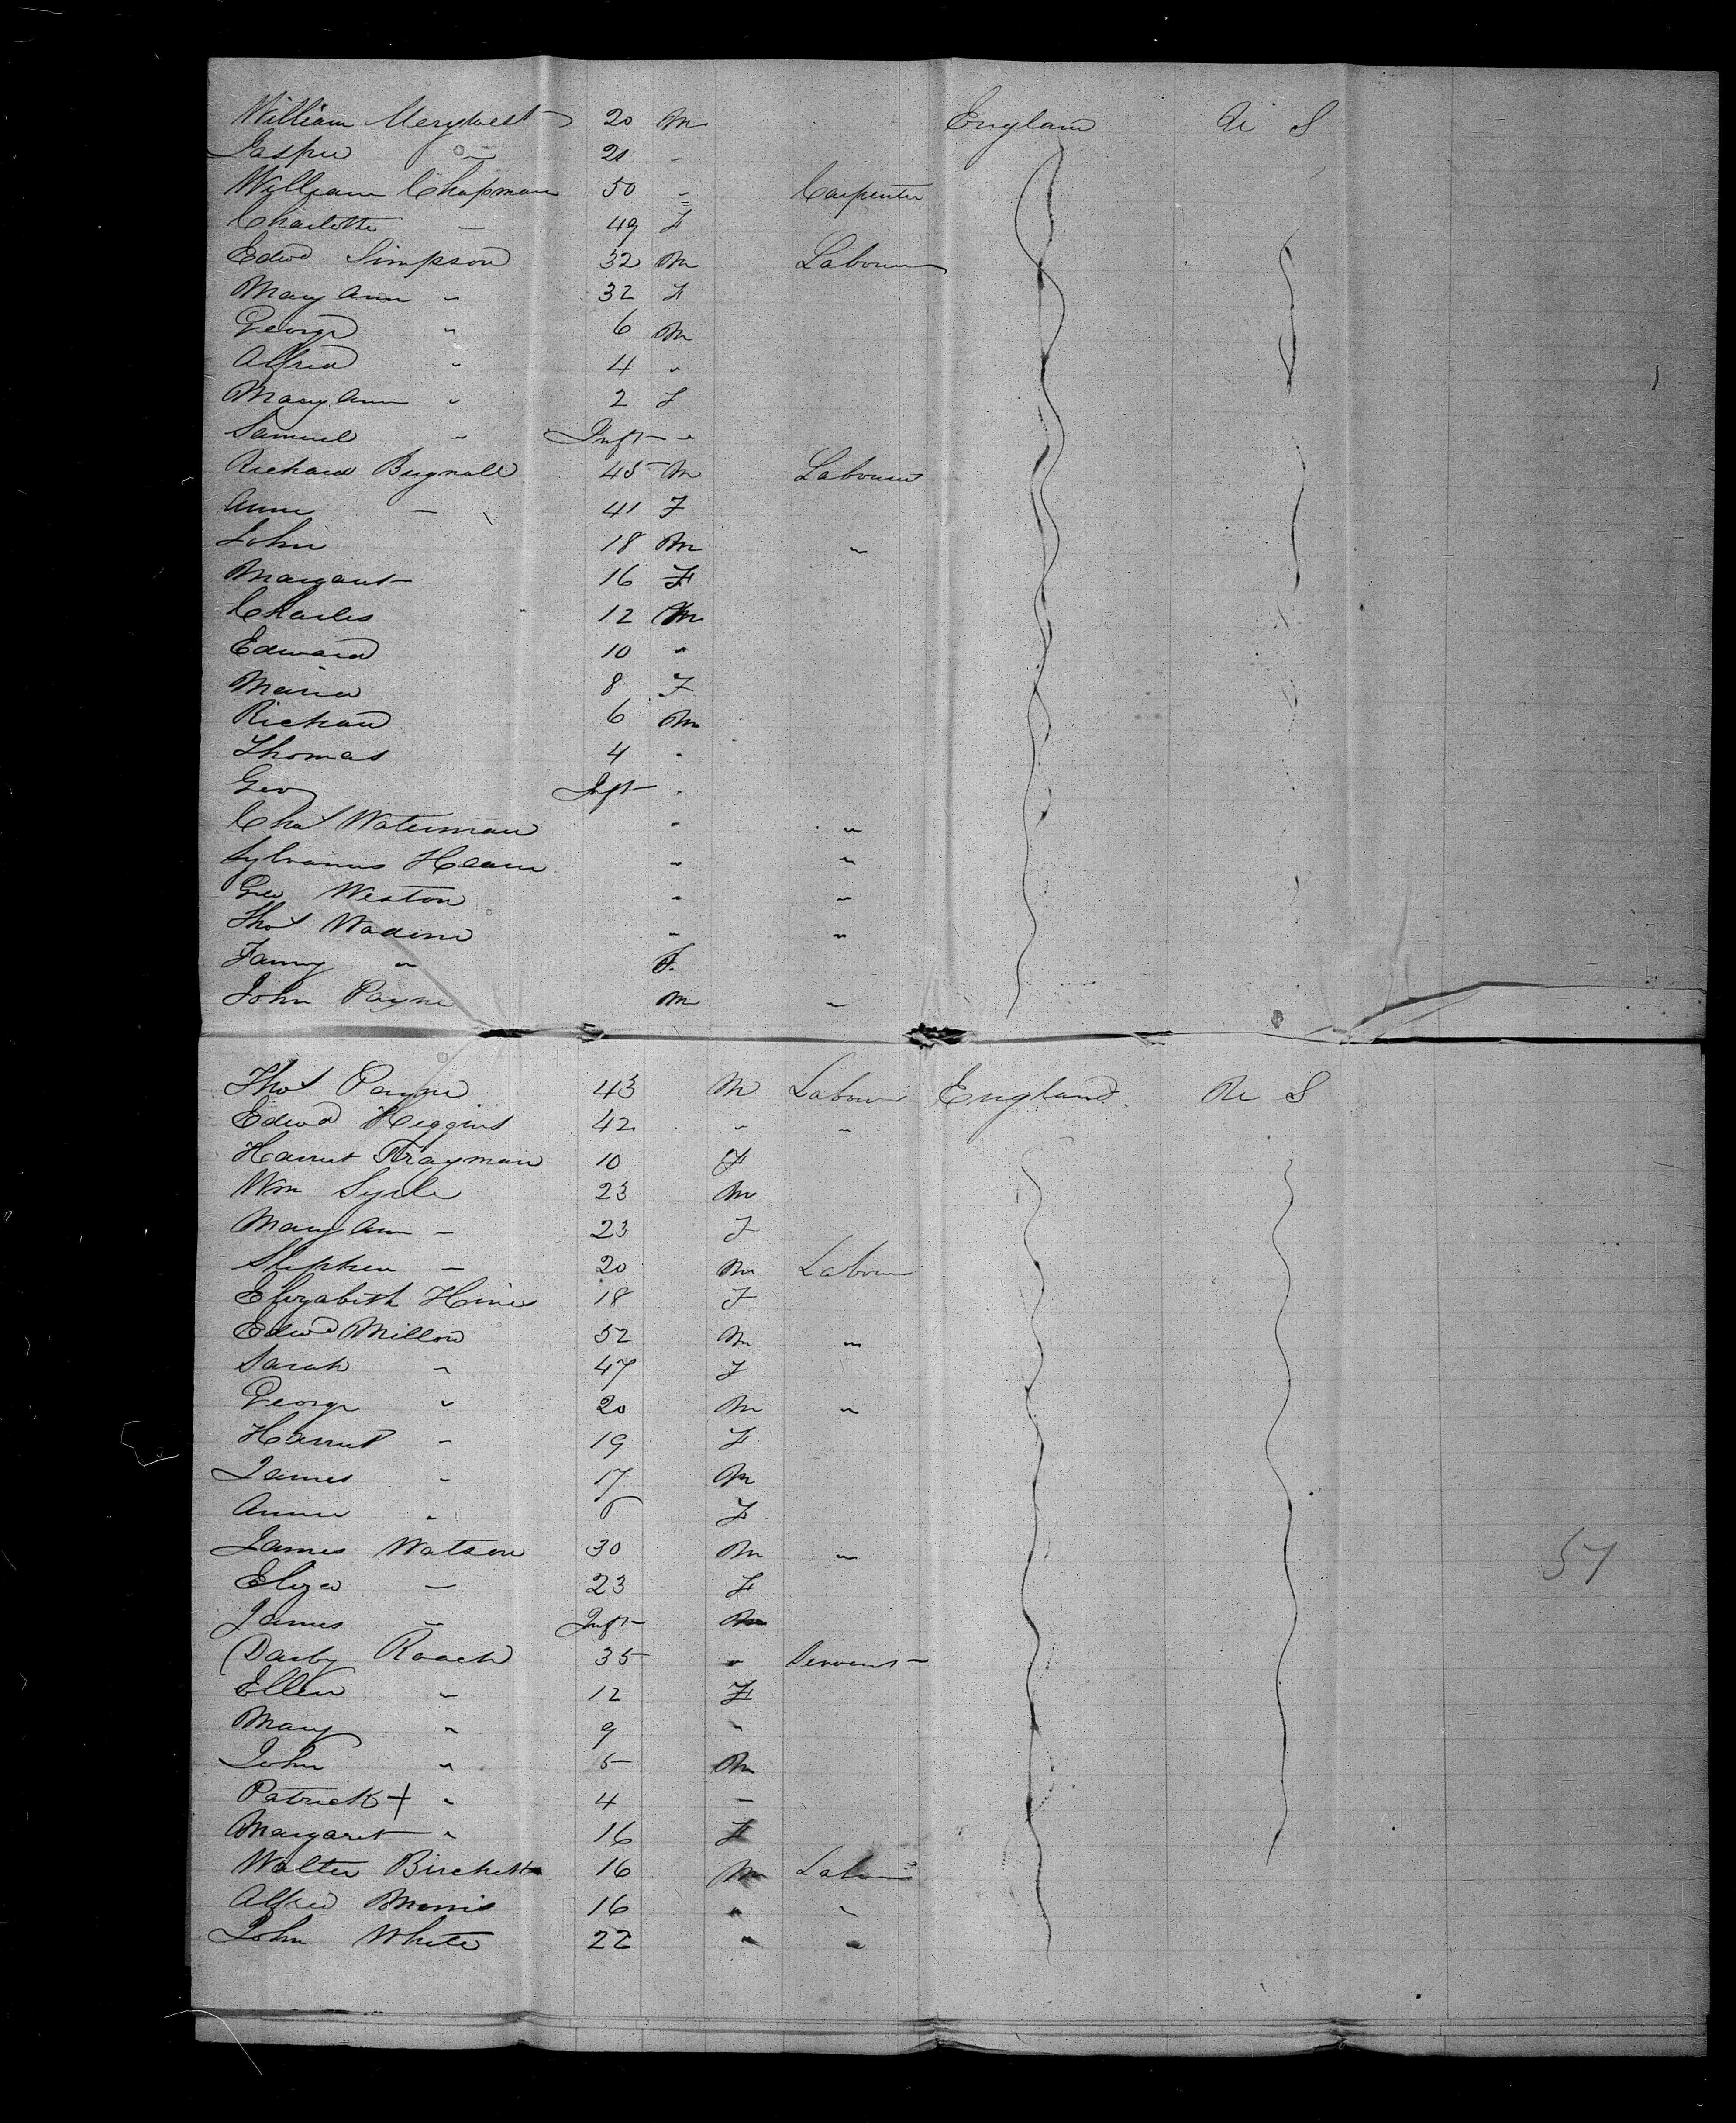 William Merydrest 20 M England U S
Jasper " 21 "
William Chapman 50 " Carpenter
Charlotte — 49 F
Edwd Simpson 32 M Labourer
Mary Ann " 32 F
George " 6 M
Alfred " 4 "
Mary Ann " 2 F
Samuel " Inft "
Richard Bugnall 45 M Labourer
Anne — 41 F
John 18 M "
Margaret 16 F
Charles 12 M
Edward 10 "
Maria 8 F
Richard 6 M
Thomas 4 "
Geo Inft "
Chas Waterman " "
Sylvanus Hearn " "
Geo Weston " "
Thos " "
Fanny " F
John Payne M "
Thos Payne 43 M Labourer England U S
Edwd Higgins 42 " "
Harriet 10 F
Wm 23 M
Mary Ann — 23 F
Stephen — 20 M Labourer
Elizabeth Hines 18 F
Edwd 52 M "
Sarah " 47 F
George " 20 M "
Harriet " 19 F
James " 17 M
Annie " F
James Watson 30 M "
Eliza — 23 F
James " Inft M
Darby Roach 35 " Servant
Ellen " 12 F
Mary " 9 "
John " 5 M
Patrick + " 4 —
Margaret " 16 F
Walter 16 M Labour
Alfred Morris 16 " "
John White 22 " "
57